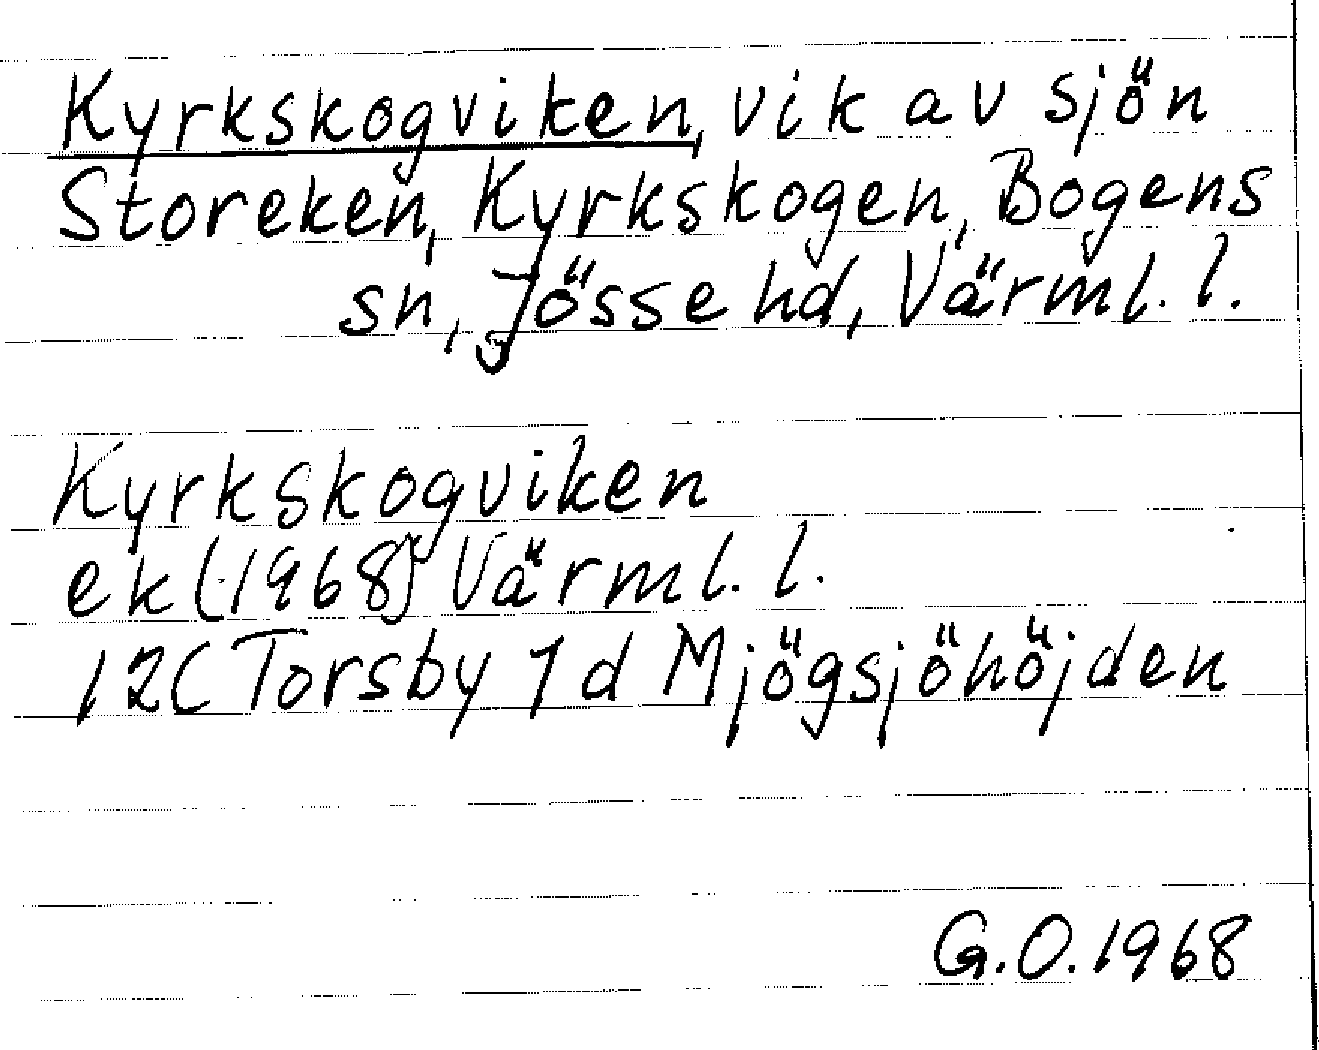 Kyrkskogviken, vik av sjön
Storeken, Kyrkskogen, Bogens
sn, Jösse hd, Värml. l.
Kyrkskogviken
ek (1968) Värml. l.
12C Torsby 1d Mjögsjöhöjden
G.O. 1968